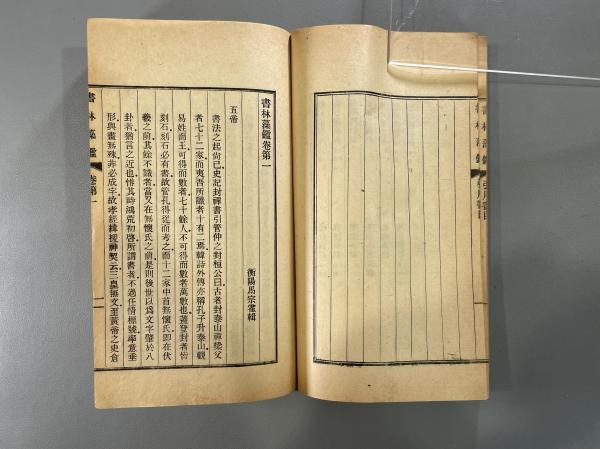 書林藻鑑卷第一
衡陽馬宗霍輯
五帝
書法之起尙已史記封禪書引管仲之對桓公曰古者封泰山禪梁父
者七十二家而夷吾所識者十有二焉韓詩外傳亦稱孔子升泰山觀
易姓而王可得而數者七十餘人不可得而數者萬數也蓋登封者皆
刻石刻石必有書故管孔得從而考之而十二家中首無懷氏卽在伏
羲之前其餘不識者當又在無懷氏之前是則後世以爲文字肇於八
卦者猶言之近也惟其時鴻荒初啓所謂書者不過任情標號率意垂
形與畫無殊非必成字故孝經緯援神契云三皇無文至黃帝之史倉
書林藻鑑 卷第一
一
書林藻鑑 引用書目